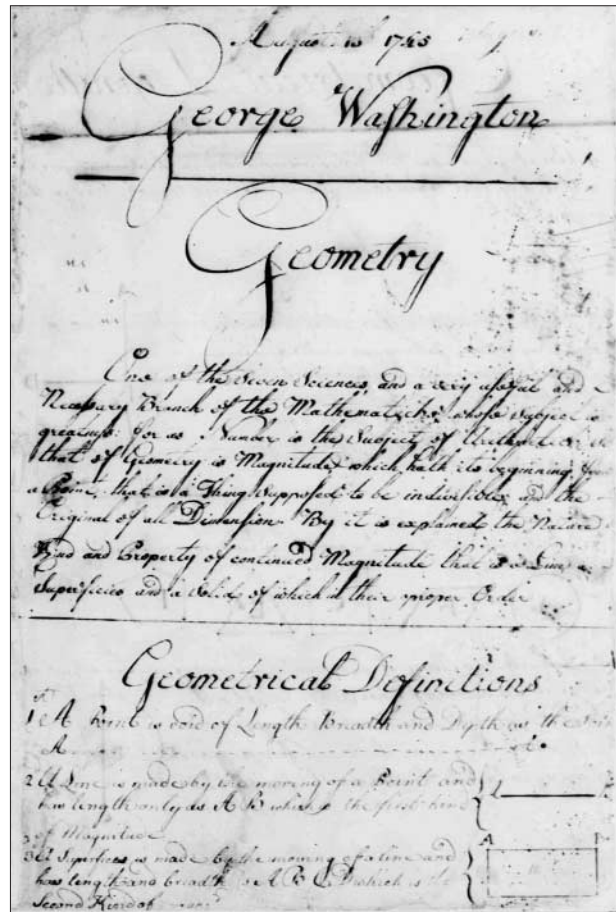 August 13 1745
George Washington
Geometry
One of the Seven Sciences, and a very useful and
Necessary Branch of the Mathematicks, whose Subject is
greatness: for as Number is the Subject of Arithmetic so
that of Geometry is Magnitude, which hath its beginning from
a Point, that is a Thing supposed to be indivisible, and the
Original of all Dimension. By it is explained the Nature
Kind and Property of continued Magnitude that is a Line a
Superficies and a Solid, of which in their proper Order
Geometrical Definitions
1 A Point is void of Length Breadth and Depth as the
A
2 A Line is made by the moving of a Point and
has length only as A B which is the first kind
of Magnitude
3 A Superfices is made by the moving of a line and
has length and breadth as A B C D which is the
Second Kind of
A